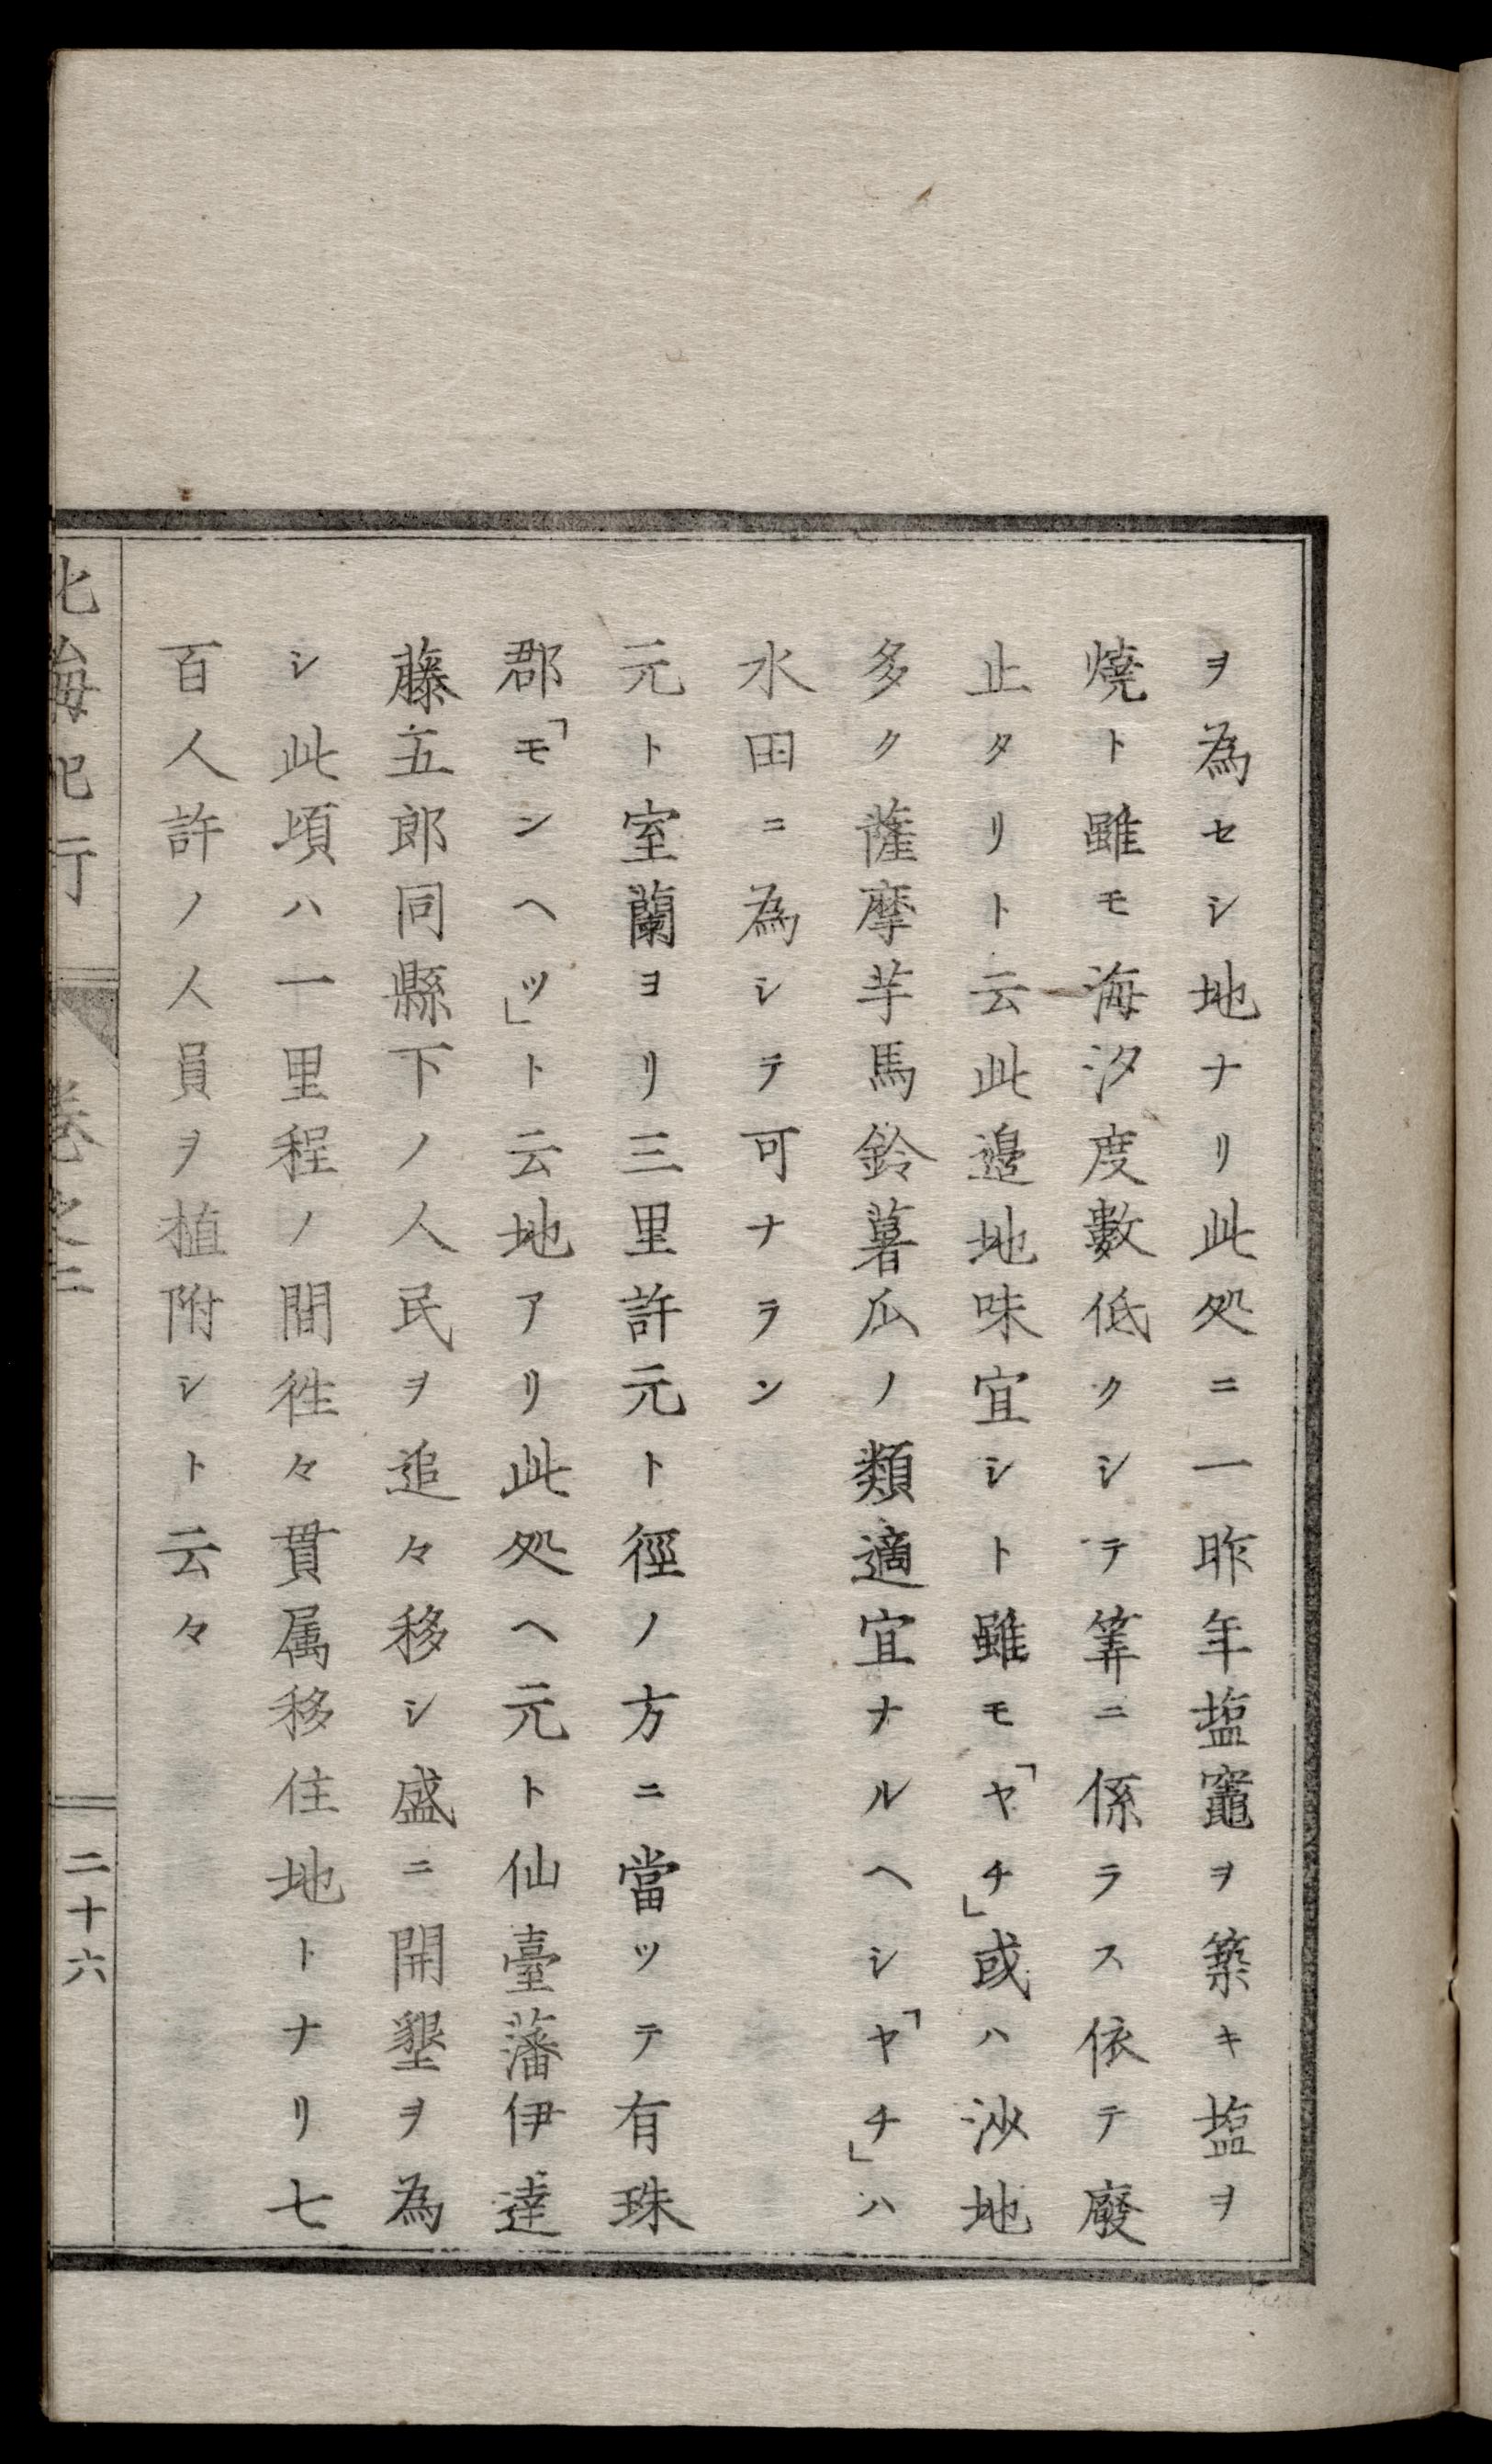 ヲ為セシ地ナリ此処ニ一昨年塩竈ヲ築キ塩ヲ
燒ト雖モ海汐度數低クシテ筭ニ係ラス依テ廢
止タリト云此邉地味宜シト雖モ「ヤチ」或ハ沙地
多ク薩摩芋馬鈴薯瓜ノ類適宜ナルヘシ「ヤチ」ハ
水田ニ為シテ可ナラン
元ト室蘭ヨリ三里許元ト徑ノ方ニ當ツテ有珠
郡「モンヘツ」ト云地アリ此処ヘ元ト仙臺藩伊達
藤五郎同縣下ノ人民ヲ追々移シ盛ニ開墾ヲ為
シ此頃ハ一里程ノ間徃々貫属移住地トナリ七
百人許ノ人員ヲ植附シト云々
北海紀行 卷之二 二十六